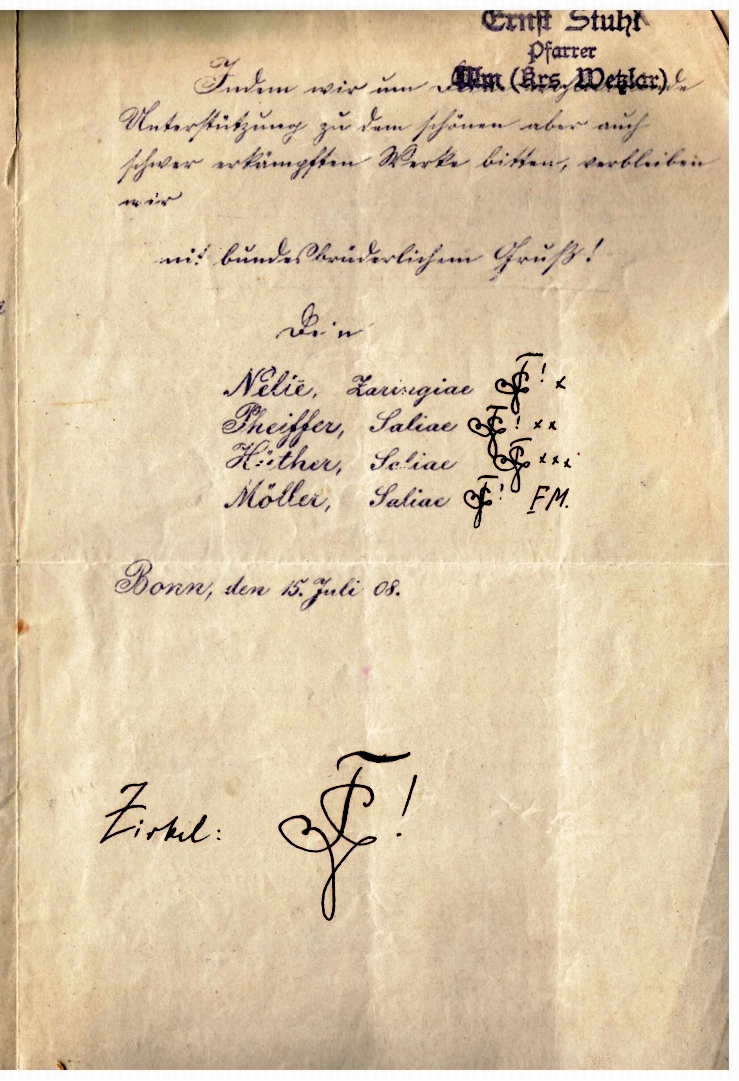 Ernst Stuhl
Pfarrer
Ulm (Krs. Wetzlar)
Indem wir um
Unterstützung zu dem schönen aber auch
schwer erkämpften Werke bitten, verbleiben
wir
mit bundesbrüderlichem Gruß!
Dein
Nelie, Zaringiae ! x
Pheiffer, Saliae ! xx
Hüther, Saliae xxx
Möller, Saliae ! FM.
Bonn, den 15. Juli 08.
Zirkel: !